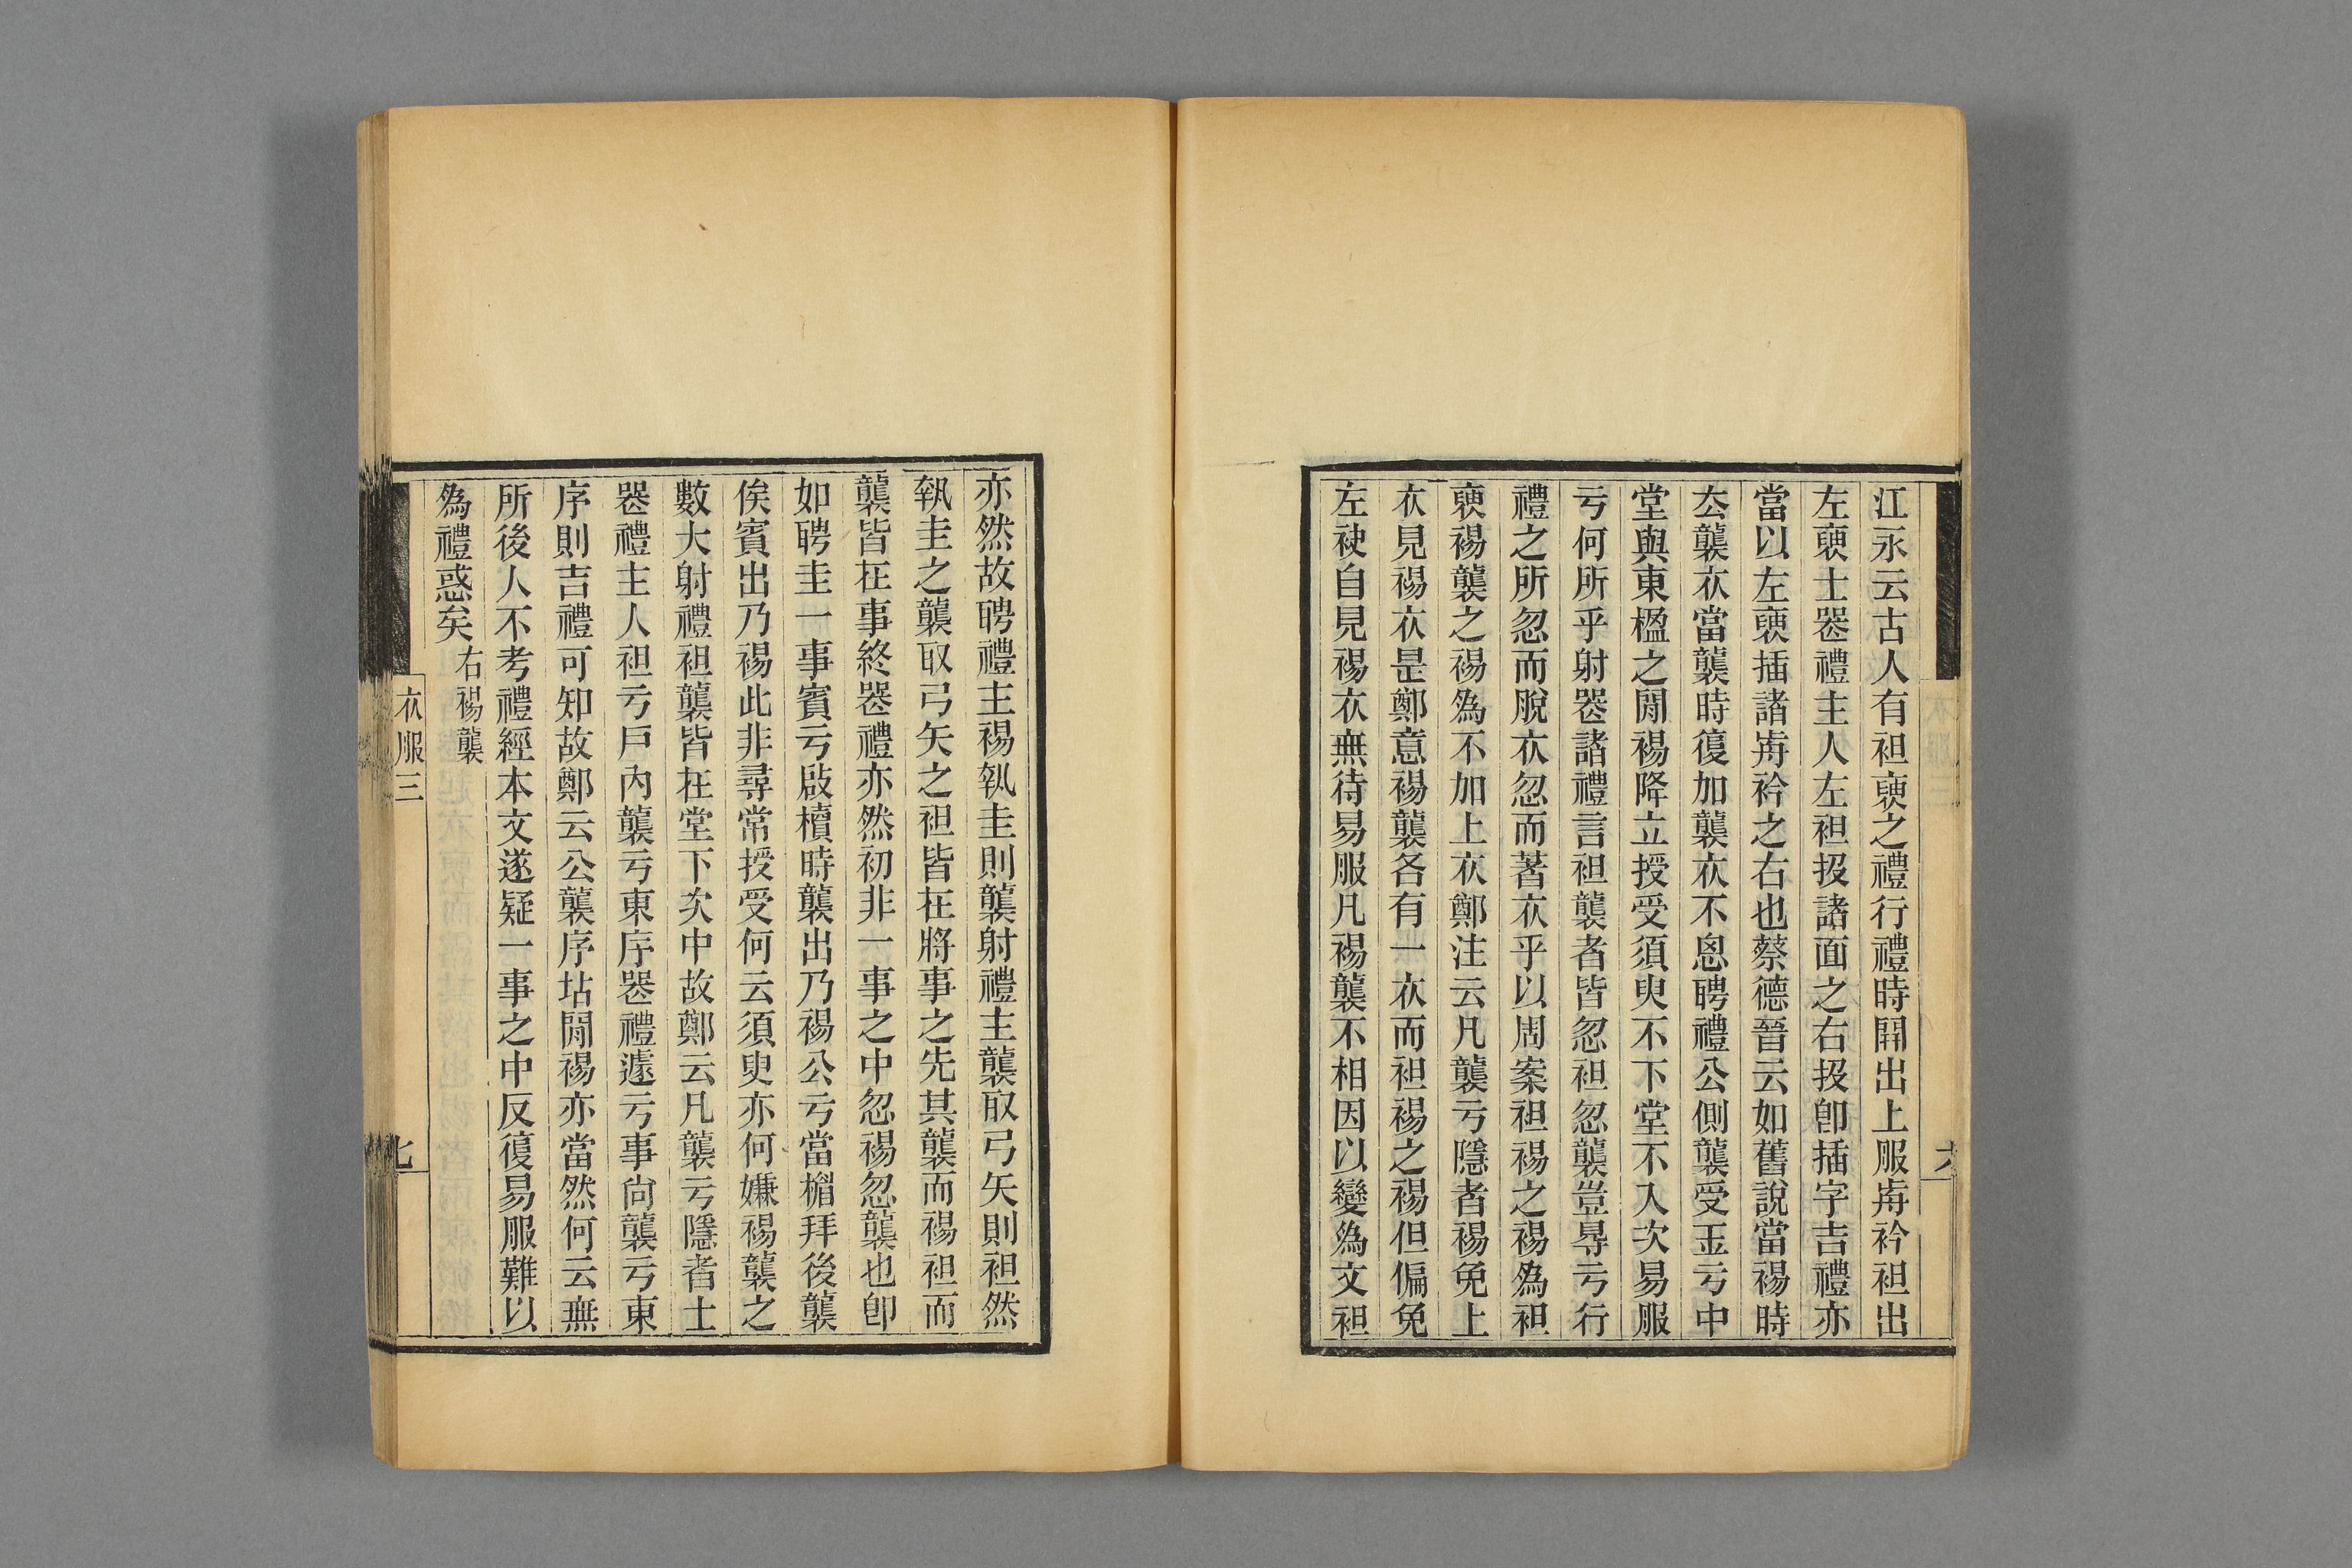 江永云古人有袒褎之禮行禮時開出上服歬衿袒出
左褎士喪禮主人左袒扱諸面之右扱卽插字吉禮亦
當以左褎插諸歬衿之右也蔡德晉云如舊說當裼時
厺襲衣當襲時復加襲衣不悤聘禮公側襲受玉亏中
堂與東楹之閒裼降立授受須臾不下堂不入次易服
亏何所乎射喪諸禮言袒襲者皆忽袒忽襲豈㝵亏行
禮之所忽而脫衣忽而著衣乎以周案袒裼之裼爲袒
褎裼襲之裼爲不加上衣鄭注云凡襲亏隱者裼免上
衣見裼衣昰鄭意裼襲各有一衣而袒裼之裼但偏免
左袂自見裼衣無待易服凡裼襲不相因以變爲文袒
亦然故聘禮主裼執圭則襲射禮主襲取弓矢則袒然
執圭之襲取弓矢之袒皆在將事之先其襲而裼袒而
襲皆在事終喪禮亦然初非一事之中忽裼忽襲也卽
如聘圭一事賓亏啟櫝時襲出乃裼公亏當楣拜後襲
矦賓出乃裼此非尋常授受何云須臾亦何嫌裼襲之
數大射禮袒襲皆在堂下次中故鄭云凡襲亏隱者士
喪禮主人袒亏戶內襲亏東序喪禮遽亏事尙襲亏東
序則吉禮可知故鄭云公襲序坫閒裼亦當然何云無
所後人不考禮經本文遂疑一事之中反復易服難以
爲禮惑矣右裼襲
衣服三
七